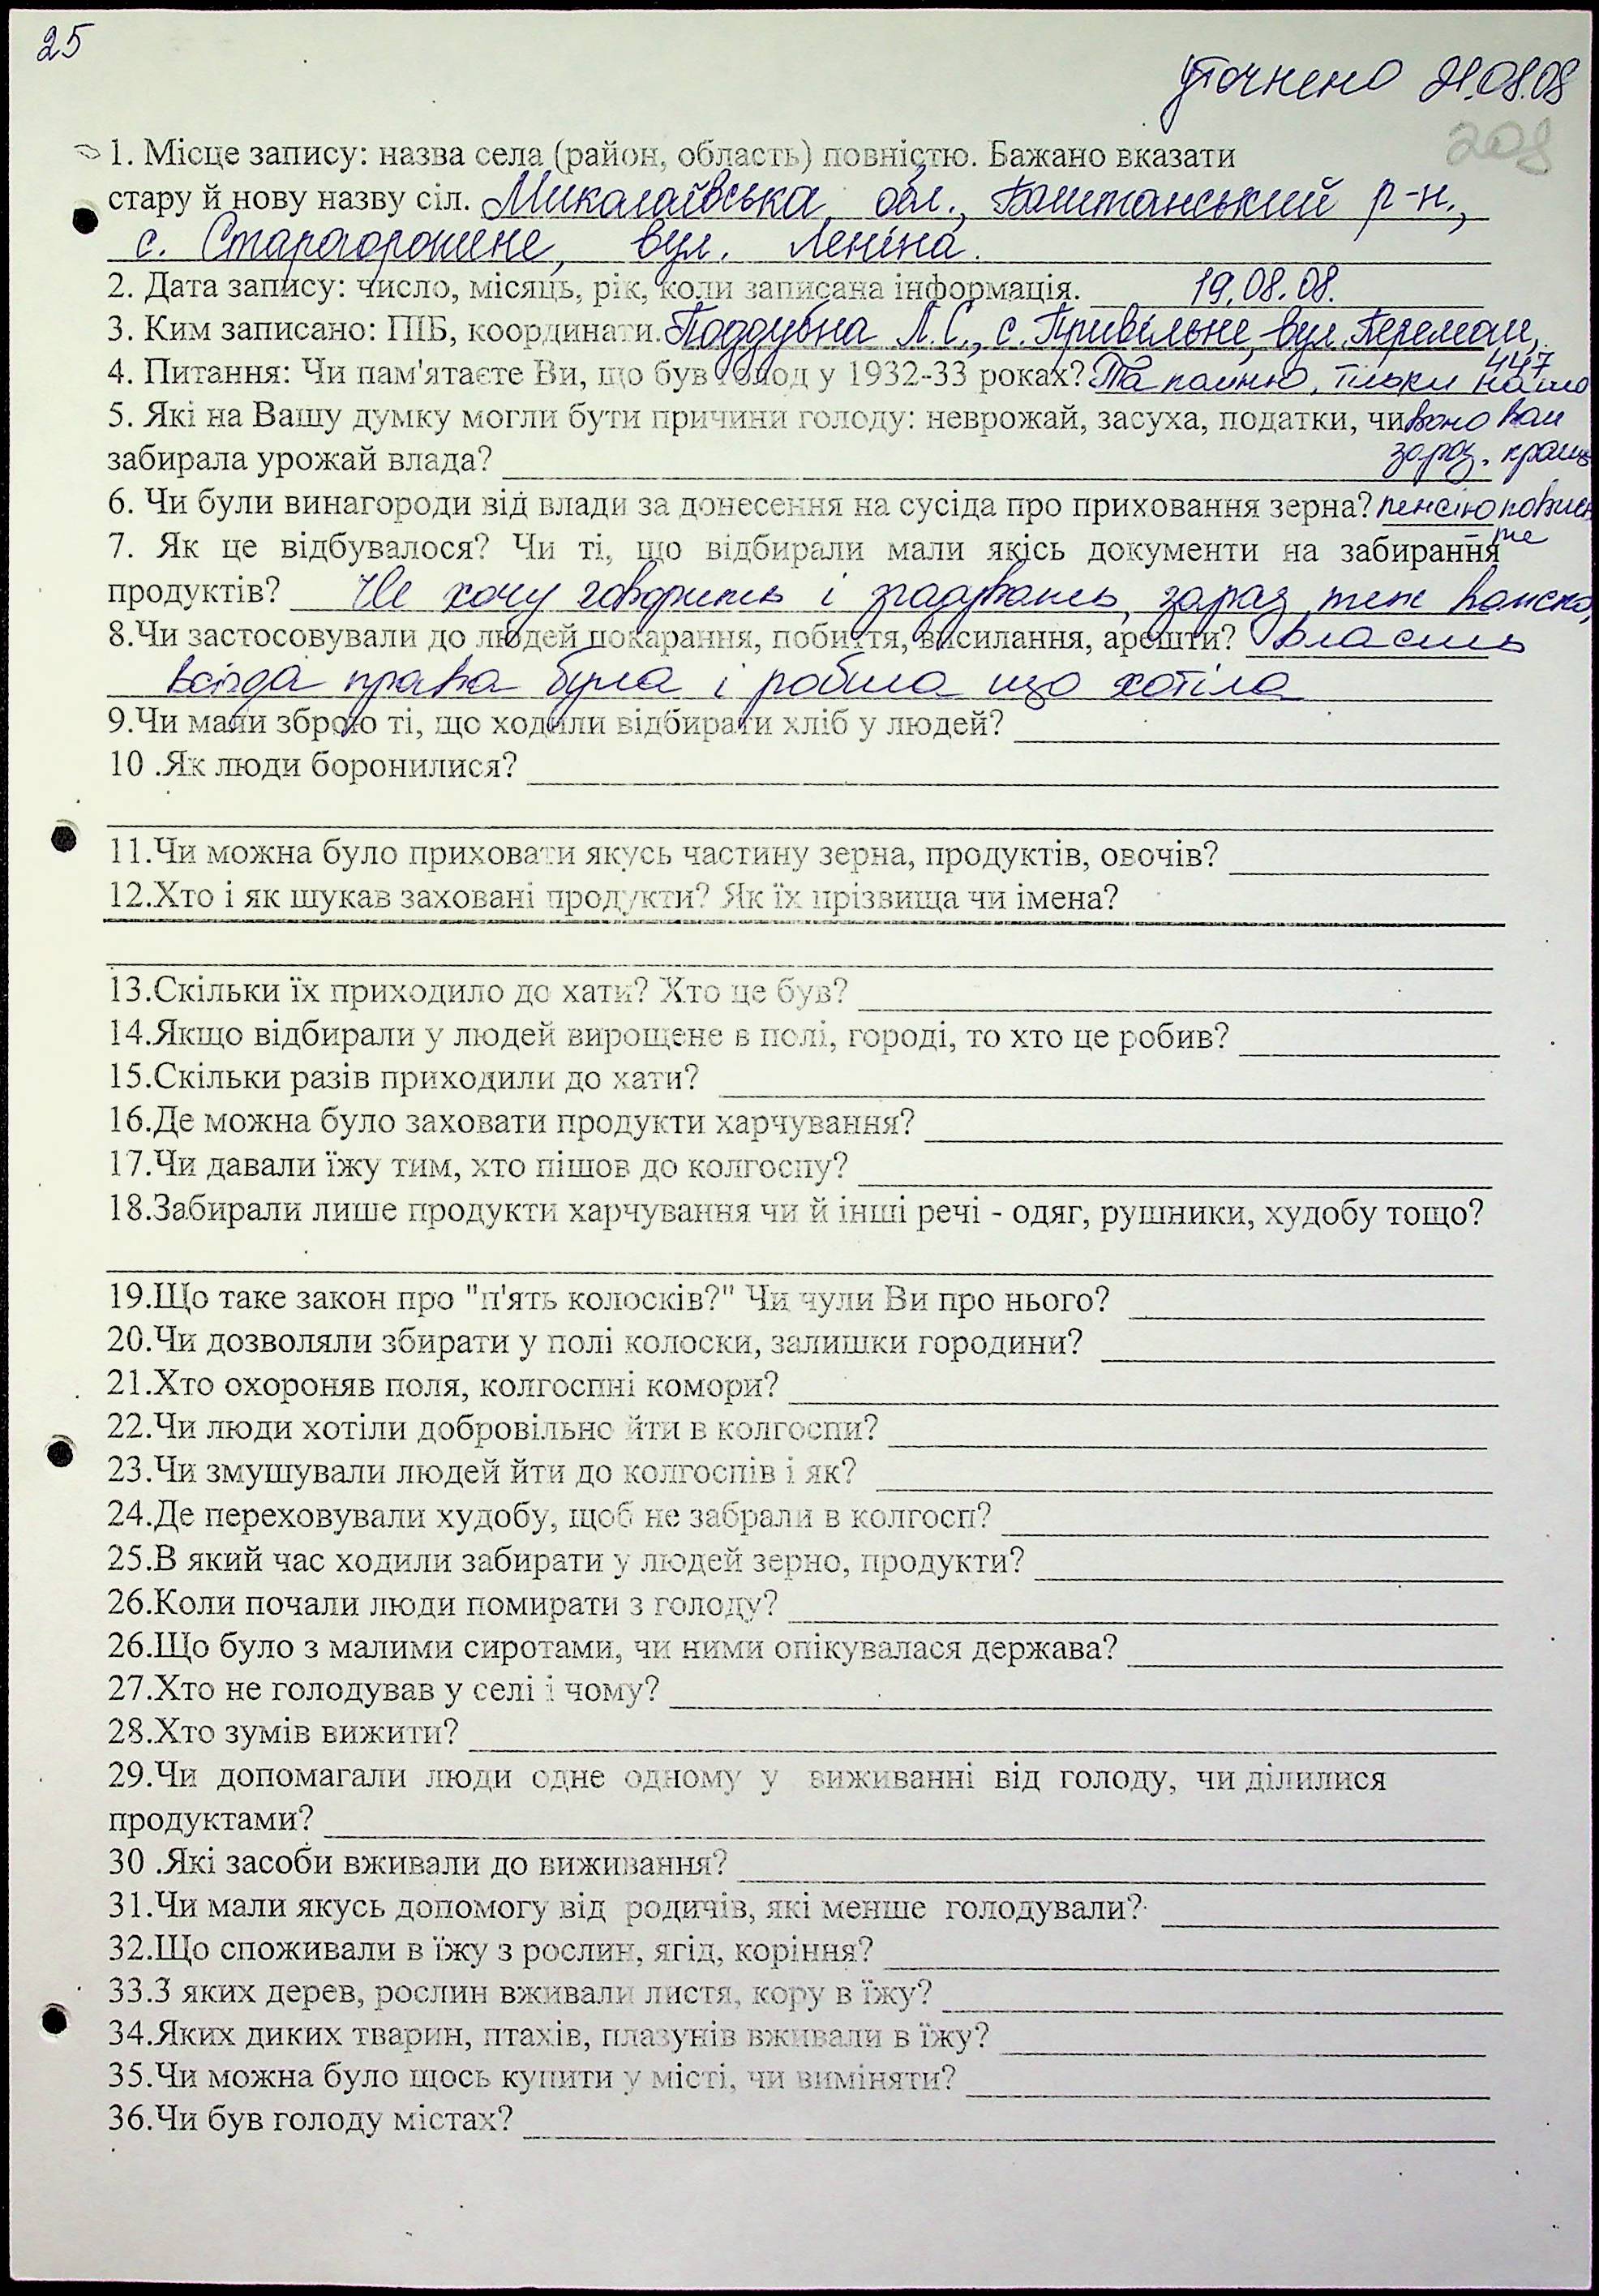 25
уточнено 21.08.08
208
1. Місце запису: назва села (район, область) повністю. Бажано вказати
стару й нову назву сіл. Миколаївська обл., Баштанський р-н.,
с. Старогорожене, вул. Леніна.
2. Дата запису: число, місяць, рік, коли записана інформація. 19.08.08.
3. Ким записано: ПІБ, координати. Поддубна Л.С., с. Привільне, вул. Перемоги,
447
4. Питання: Чи пам'ятаєте Ви, що був голод у 1932-33 роках? Та помню, тільки нашо
5. Які на Вашу думку могли бути причини голоду: неврожай, засуха, податки, чи воно вам
забирала урожай влада? зараз. краще
6. Чи були винагороди від влади за донесення на сусіда про приховання зерна? пенсію повись
те
7. Як це відбувалося? Чи ті, що відбирали мали якісь документи на забирання
продуктів? Не хочу говорить і згадувать, зараз теж
8.Чи застосовували до людей покарання, побиття, висилання, арешти? власть
всігда права була і робила що хотіла
9.Чи мали зброю ті, що ходили відбирати хліб у людей?
10 .Як люди боронилися?
11.Чи можна було приховати якусь частину зерна, продуктів, овочів?
12.Хто і як шукав заховані продукти? Як їх прізвища чи імена?
13.Скільки їх приходило до хати? Хто це був?
14.Якщо відбирали у людей вирощене в полі, городі, то хто це робив?
15.Скільки разів приходили до хати?
16.Де можна було заховати продукти харчування?
17.Чи давали їжу тим, хто пішов до колгоспу?
18.Забирали лише продукти харчування чи й інші речі - одяг, рушники, худобу тощо?
19.Що таке закон про "п'ять колосків?" Чи чули Ви про нього?
20.Чи дозволяли збирати у полі колоски, залишки городини?
21.Хто охороняв поля, колгоспні комори?
22.Чи люди хотіли добровільно йти в колгоспи?
23.Чи змушували людей йти до колгоспів і як?
24.Де переховували худобу, щоб не забрали в колгосп?
25.В який час ходили забирати у людей зерно, продукти?
26.Коли почали люди помирати з голоду?
26.Що було з малими сиротами, чи ними опікувалася держава?
27.Хто не голодував у селі і чому?
28.Хто зумів вижити?
29.Чи допомагали люди одне одному у виживанні від голоду, чи ділилися
продуктами?
30 .Які засоби вживали до виживання?
31.Чи мали якусь допомогу від родичів, які менше голодували?
32.Що споживали в їжу з рослин, ягід, коріння?
33.З яких дерев, рослин вживали листя, кору в їжу?
34.Яких диких тварин, птахів, плазунів вживали в їжу?
35.Чи можна було щось купити у місті, чи виміняти?
36.Чи був голоду містах?